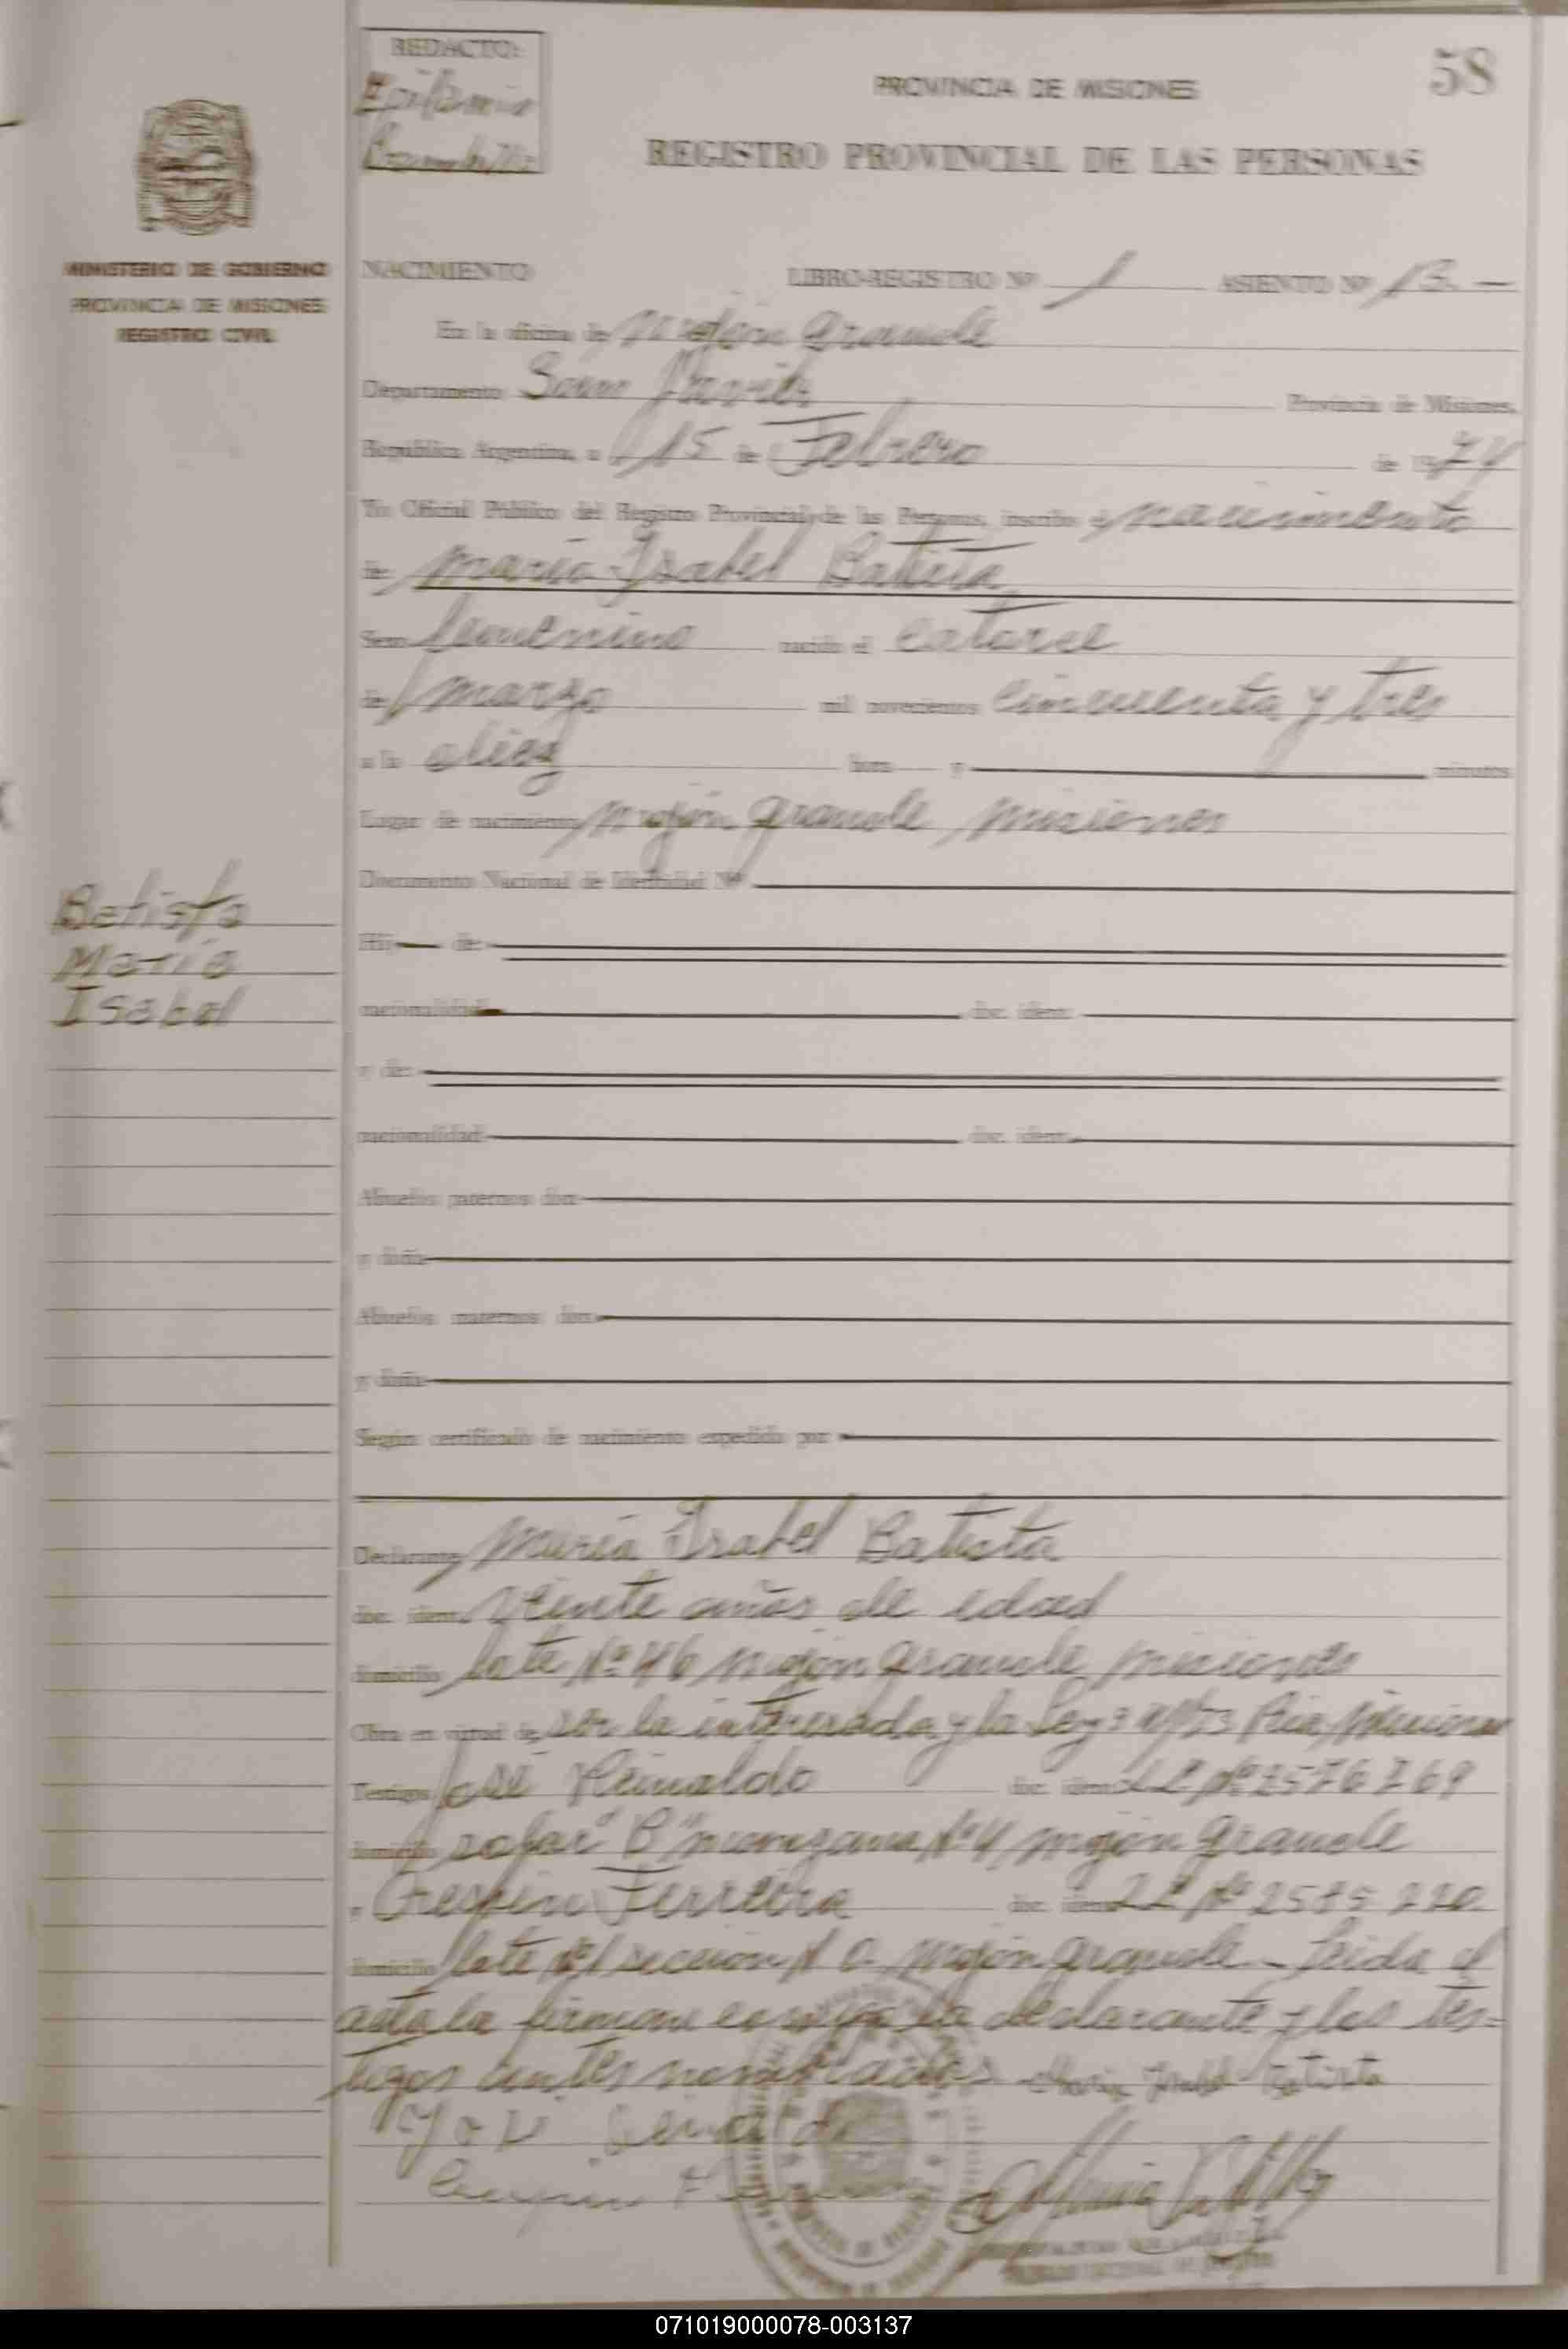 REDACTO:
58
PROVINCIA DE MISIONES
REGISTRO PROVINCIAL DE LAS PERSONAS
MINISTERIO DE GOBIERNO
PROVINCIA DE MISIONES
REGISTRO CIVIL
NACIMIENTO LIBRO-REGISTRO Nº 1 ASIENTO Nº 13.-
En la oficina de Mojón Grande
Departamento San Javier Provincia de Misiones.
República Argentina, a 15 de Febrero de 1974
Yo Oficial Público del Registro Provincial de las Personas, inscribo el nacimiento
de María Isabel Batista
Sexo femenino nacido el catorce
de marzo mil novecientos cincuenta y tres
a la diez hora y minutos
Lugar de nacimiento Mojón Grande Misiones
Documento Nacional de Identidad Nº
Batista
María
Isabel
Hij de:
nacionalidad doc. ident.
y de:
nacionalidad doc. ident.
Abuelos paternos don
y doña
Abuelos maternos don
y doña
Según certificado de nacimiento expedido por
Declarante María Isabel Batista
doc. ident. veinte años de edad
domicilio lote Nº 46 Mojón Grande Misiones
Obra en virtud de ser la interesada y la Ley
Testigos José Reinaldo doc. ident. LE Nº 2576769
domicilio solar "B" manzana Nº 4 Mojón Grande
y Crespin Ferreira doc. ident. LE Nº 2585220
domicilio lote sección Mojón Grande - Leida el
acta la firman conmigo la declarante y los tes=
tigos antes nombrados María Isabel Batista
071019000078-003137